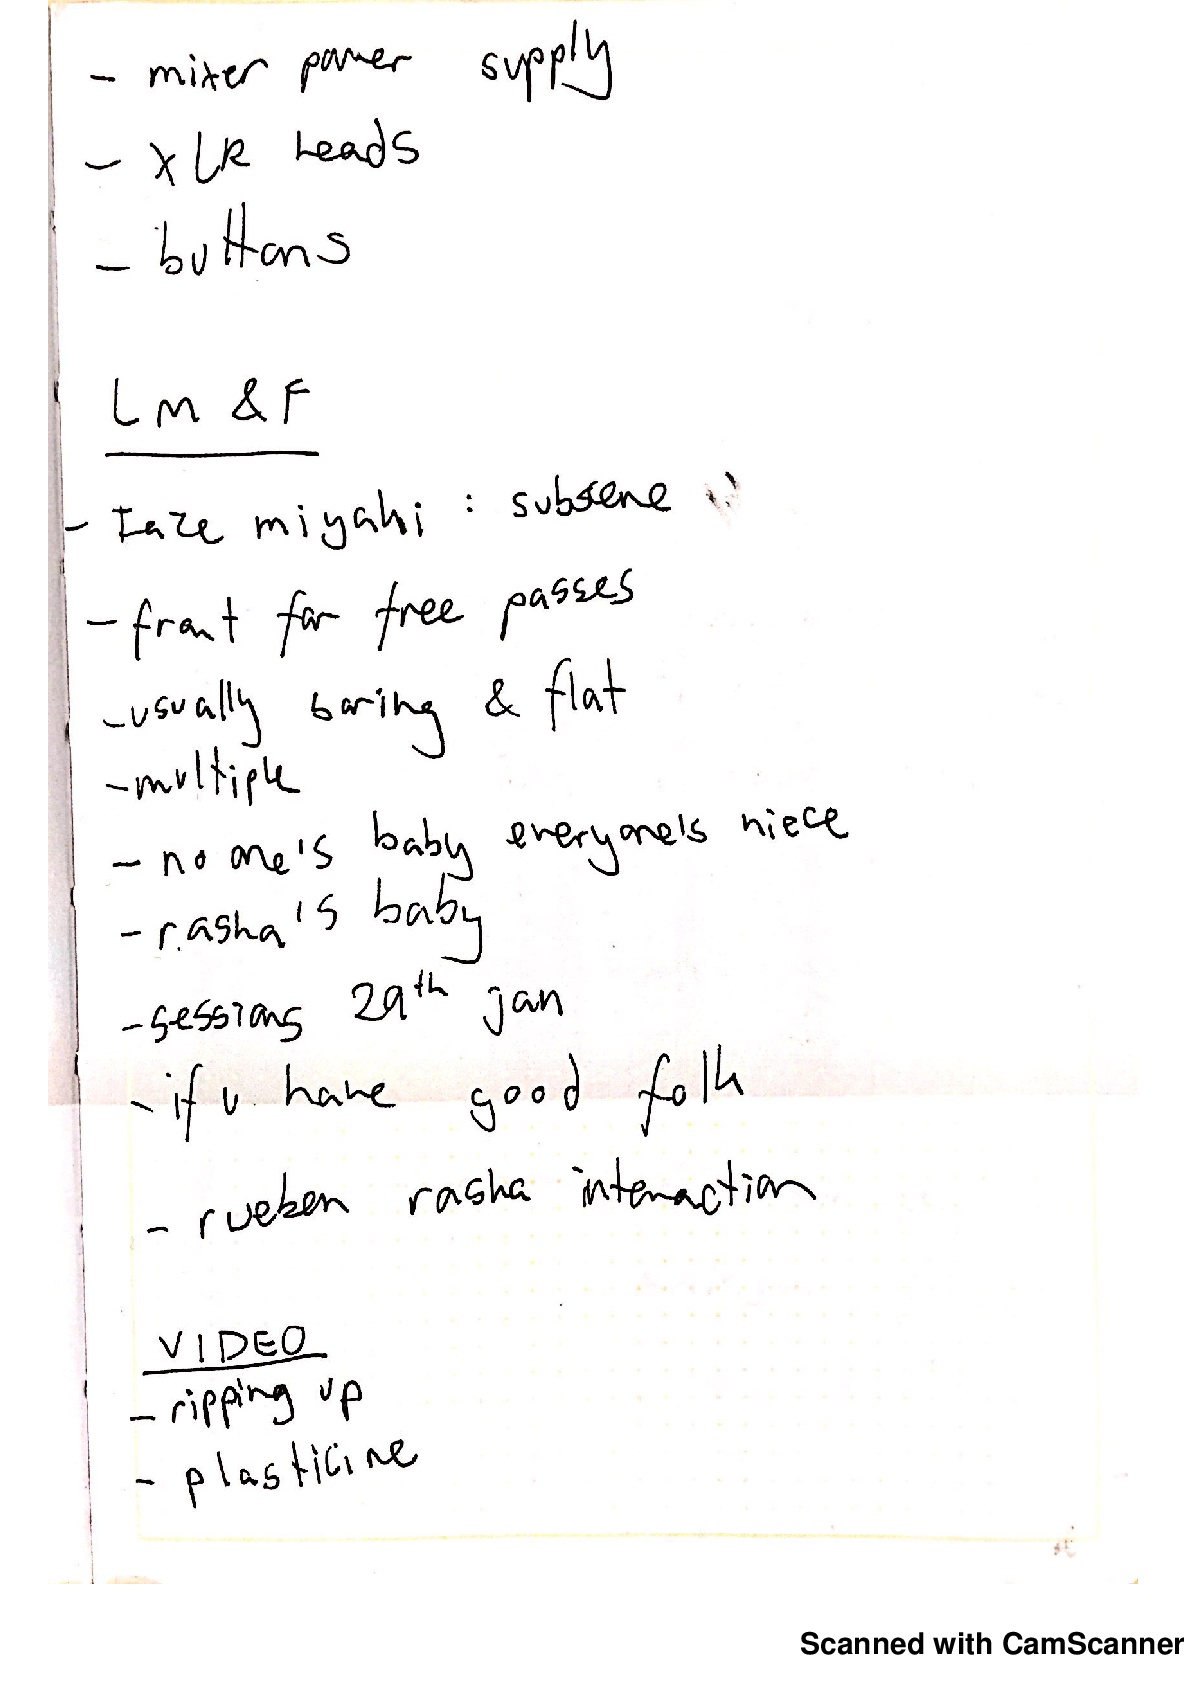 - mixer power supply
- XLR Leads
- buttons
LM & F
- miyahi : subscene
- front for free passes
- usually boring & flat
- multiple
- no one's baby everyone's niece
- rasha's baby
- sessions 29th jan
- if u have good folk
- rueben rasha interaction
VIDEO
- ripping up
- plasticine
Scanned with CamScanner